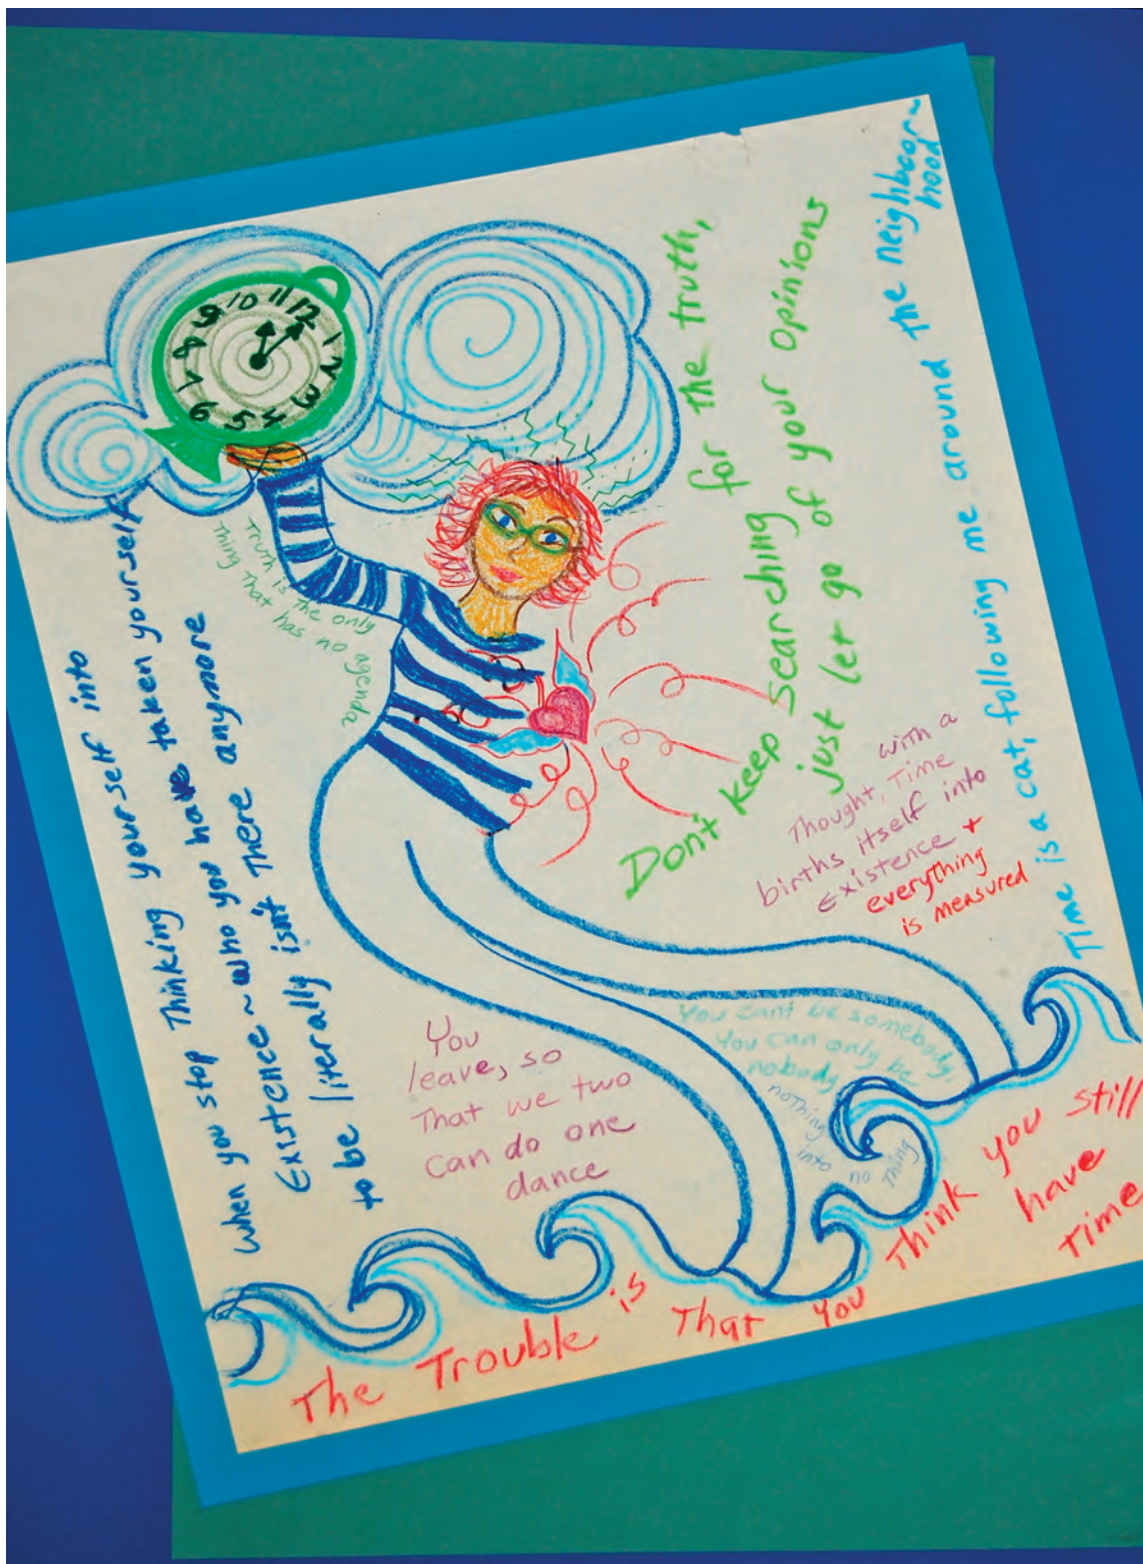 11 12 1 2 3 4 5 6 7 8 9 10
When you stop Thinking yourself into
Existence ~ who you have taken yourself
to be literally isn't There anymore
Truth is the only
Thing That has no agenda
Don't keep searching for the truth,
just let go of your opinions
Time is a cat, following me around the neighbor~
hood
with a
Thought, Time
births itself into
Existence +
everything
is measured
You
leave, so
That we two
can do one
dance
You cant be somebody,
You can only be
nobody
nothing
into no Thing
The Trouble is That you Think you still
have
Time